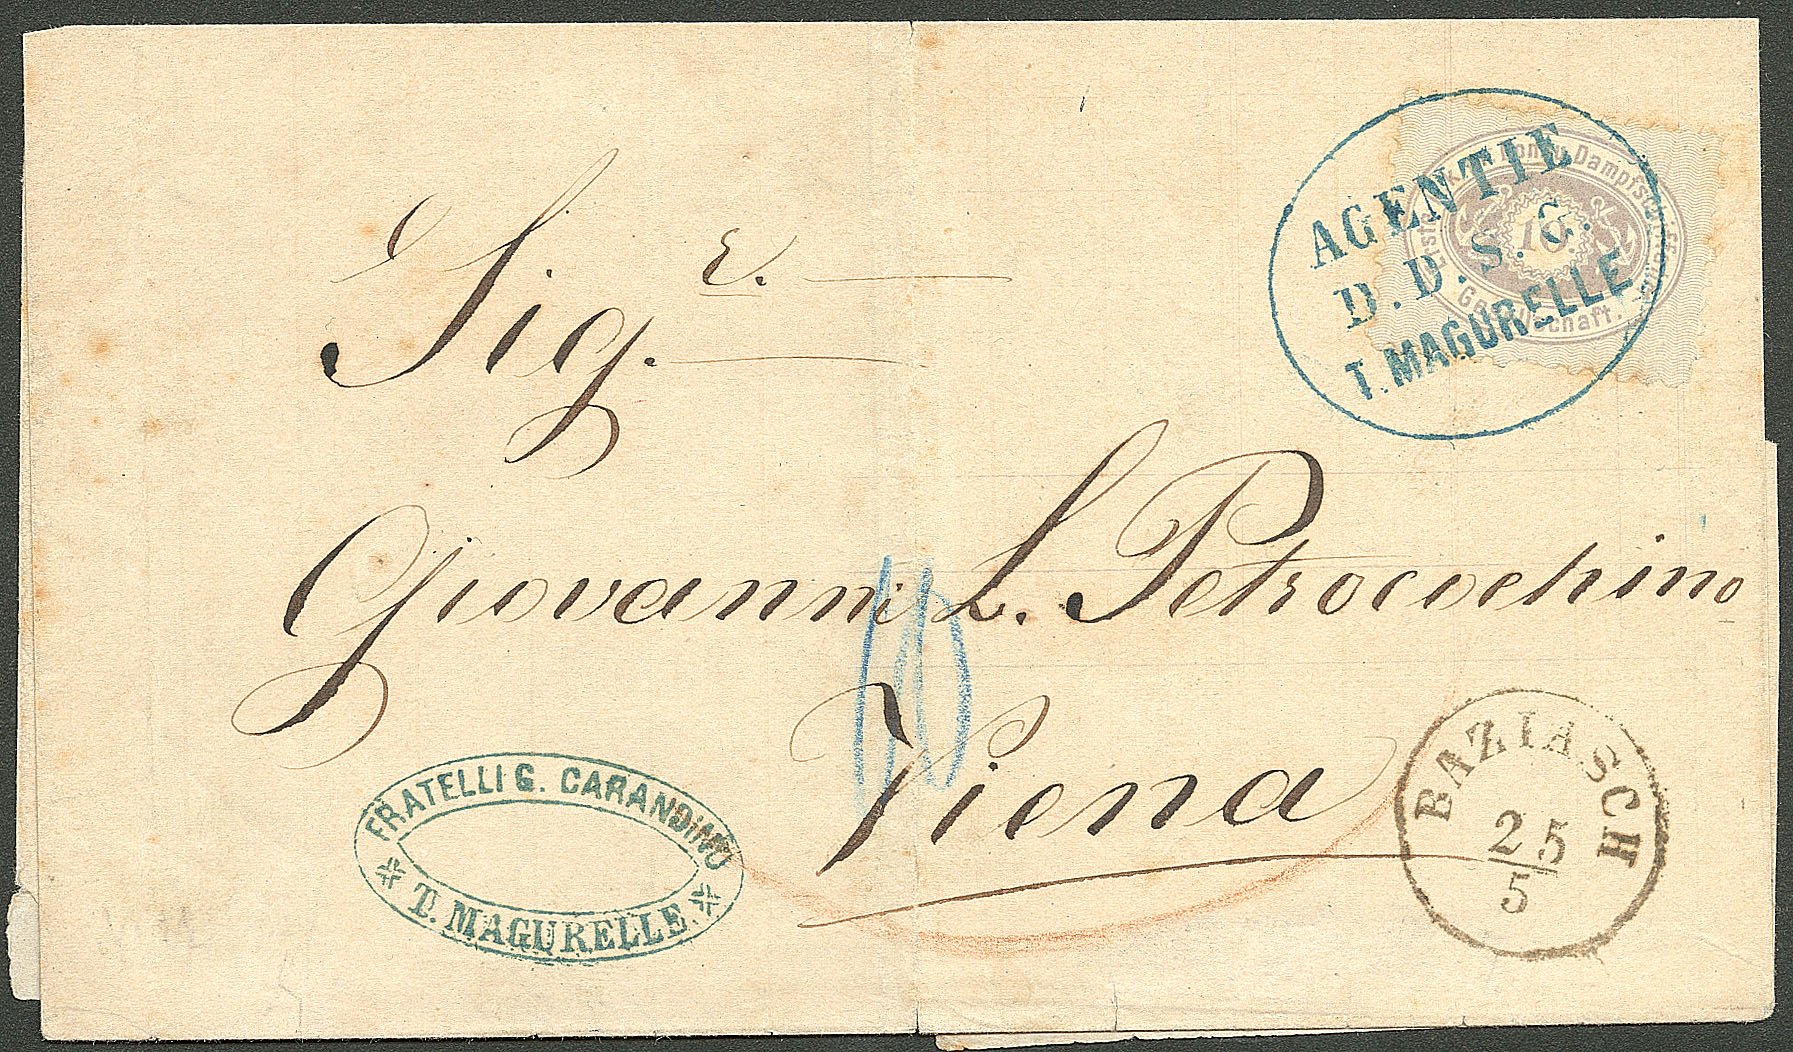 AGENTIE
D.D.S.G.
T. MAGURELLE
Donau Dampfschiffahrt
10
Gesellschaft.
Sig.r
Giovanni L. Petrocochino
10
Viena
FRATELLI G. CARANDINO
T. MAGURELLE
BAZIASCH
25
5